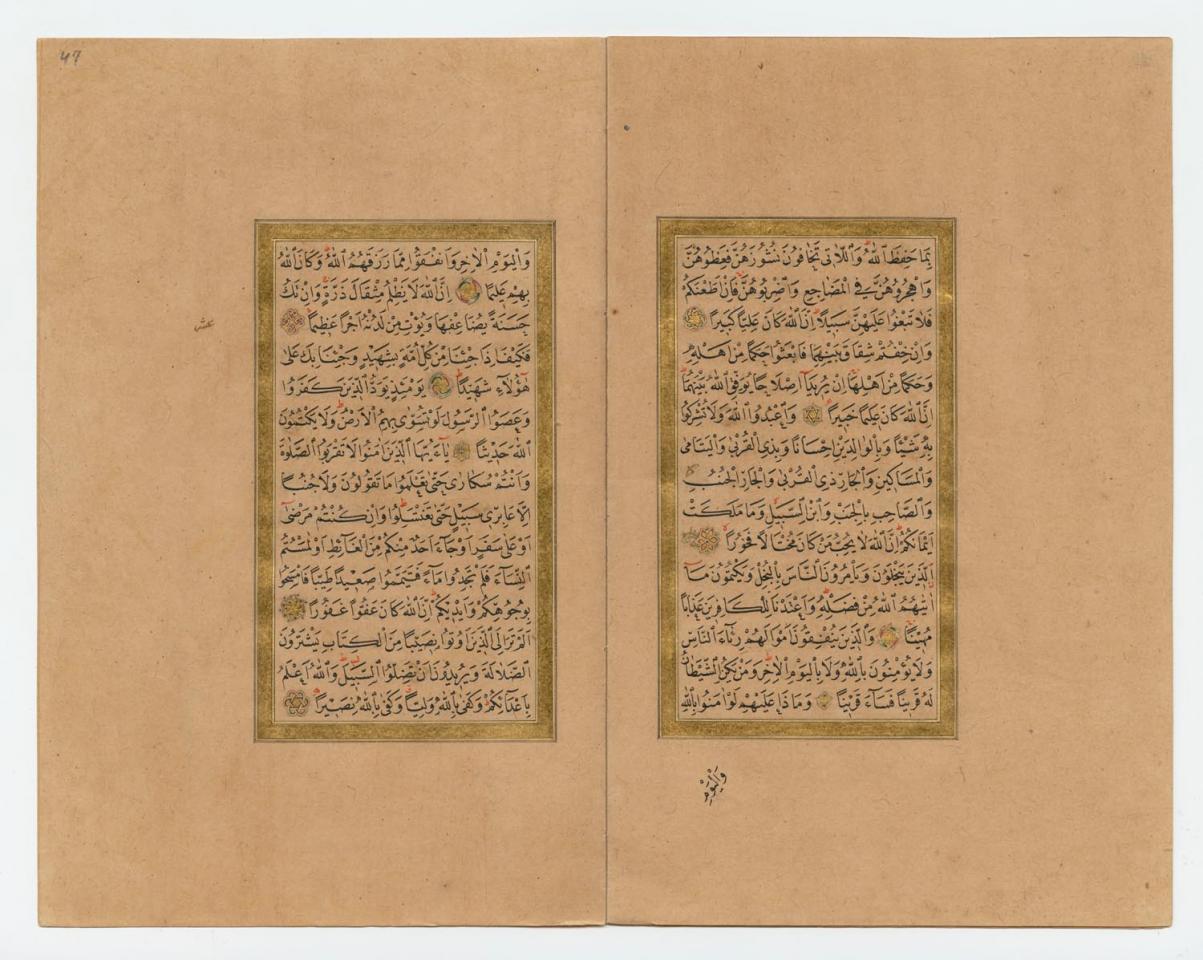 بِمَا حَفِظَ اللّٰهُ وَاللَّاتِي تَخَافُونَ نُشُوزَهُنَّ فَعِظُوهُنَّ
وَاهْجُرُوهُنَّ فِي الْمَضَاجِعِ وَاضْرِبُوهُنَّ فَاِنْ اَطَعْنَكُمْ
فَلَا تَبْغُوا عَلَيْهِنَّ سَبِيلًا اِنَّ اللّٰهَ كَانَ عَلِيًّا كَبِيرًا
وَاِنْ خِفْتُمْ شِقَاقَ بَيْنِهِمَا فَابْعَثُوا حَكَمًا مِنْ اَهْلِهِ
وَحَكَمًا مِنْ اَهْلِهَا اِنْ يُرِيدَا اِصْلَاحًا يُوَفِّقِ اللّٰهُ بَيْنَهُمَا
اِنَّ اللّٰهَ كَانَ عَلِيمًا خَبِيرًا وَاعْبُدُوا اللّٰهَ وَلَا تُشْرِكُوا
بِهِ شَيْئًا وَبِالْوَالِدَيْنِ اِحْسَانًا وَبِذِي الْقُرْبٰى وَالْيَتَامٰى
وَالْمَسَاكِينِ وَالْجَارِ ذِي الْقُرْبٰى وَالْجَارِ الْجُنُبِ
وَالصَّاحِبِ بِالْجَنْبِ وَابْنِ السَّبِيلِ وَمَا مَلَكَتْ
اَيْمَانُكُمْ اِنَّ اللّٰهَ لَا يُحِبُّ مَنْ كَانَ مُخْتَالًا فَخُورًا
اَلَّذِينَ يَبْخَلُونَ وَيَأْمُرُونَ النَّاسَ بِالْبُخْلِ وَيَكْتُمُونَ مَا
اٰتٰيهُمُ اللّٰهُ مِنْ فَضْلِهِ وَاَعْتَدْنَا لِلْكَافِرِينَ عَذَابًا
مُهِينًا وَالَّذِينَ يُنْفِقُونَ اَمْوَالَهُمْ رِئَاءَ النَّاسِ
وَلَا يُؤْمِنُونَ بِاللّٰهِ وَلَا بِالْيَوْمِ الْاٰخِرِ وَمَنْ يَكُنِ الشَّيْطَانُ
لَهُ قَرِينًا فَسَاءَ قَرِينًا وَمَاذَا عَلَيْهِمْ لَوْ اٰمَنُوا بِاللّٰهِ
وَالْيَوْمِ
47
وَالْيَوْمِ الْاٰخِرِ وَاَنْفَقُوا مِمَّا رَزَقَهُمُ اللّٰهُ وَكَانَ اللّٰهُ
بِهِمْ عَلِيمًا اِنَّ اللّٰهَ لَا يَظْلِمُ مِثْقَالَ ذَرَّةٍ وَاِنْ تَكُ
حَسَنَةً يُضَاعِفْهَا وَيُؤْتِ مِنْ لَدُنْهُ اَجْرًا عَظِيمًا
عشر
فَكَيْفَ اِذَا جِئْنَا مِنْ كُلِّ اُمَّةٍ بِشَهِيدٍ وَجِئْنَا بِكَ عَلٰى
هٰؤُلَاءِ شَهِيدًا يَوْمَئِذٍ يَوَدُّ الَّذِينَ كَفَرُوا
وَعَصَوُا الرَّسُولَ لَوْ تُسَوّٰى بِهِمُ الْاَرْضُ وَلَا يَكْتُمُونَ
اللّٰهَ حَدِيثًا يَا اَيُّهَا الَّذِينَ اٰمَنُوا لَا تَقْرَبُوا الصَّلٰوةَ
وَاَنْتُمْ سُكَارٰى حَتّٰى تَعْلَمُوا مَا تَقُولُونَ وَلَا جُنُبًا
اِلَّا عَابِرِي سَبِيلٍ حَتّٰى تَغْتَسِلُوا وَاِنْ كُنْتُمْ مَرْضٰى
اَوْ عَلٰى سَفَرٍ اَوْ جَاءَ اَحَدٌ مِنْكُمْ مِنَ الْغَائِطِ اَوْ لٰمَسْتُمُ
النِّسَاءَ فَلَمْ تَجِدُوا مَاءً فَتَيَمَّمُوا صَعِيدًا طَيِّبًا فَامْسَحُوا
بِوُجُوهِكُمْ وَاَيْدِيكُمْ اِنَّ اللّٰهَ كَانَ عَفُوًّا غَفُورًا
اَلَمْ تَرَ اِلَى الَّذِينَ اُوتُوا نَصِيبًا مِنَ الْكِتَابِ يَشْتَرُونَ
الضَّلَالَةَ وَيُرِيدُونَ اَنْ تَضِلُّوا السَّبِيلَ وَاللّٰهُ اَعْلَمُ
بِاَعْدَائِكُمْ وَكَفٰى بِاللّٰهِ وَلِيًّا وَكَفٰى بِاللّٰهِ نَصِيرًا